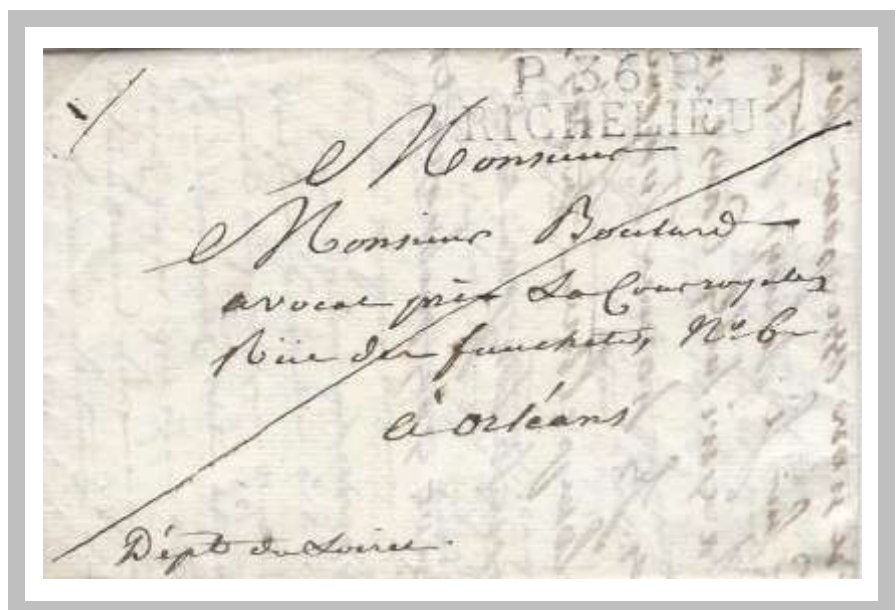 P. 36 P.
RICHELIEU
Monsieur
Monsieur Boutard
avocat près La Cour royale
Rüe des N.º 6
à orléans
Dépt. du Loiret.